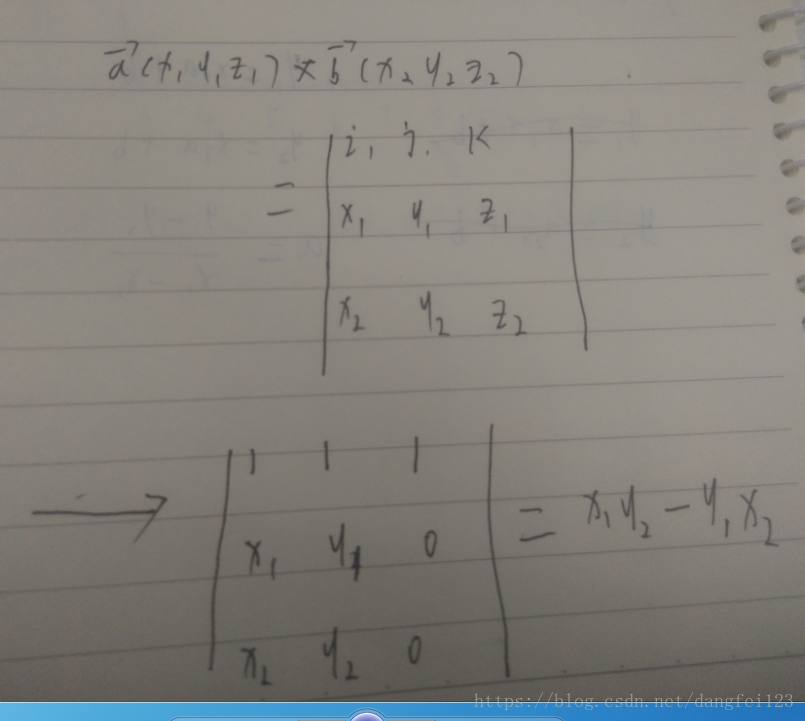 a⃗ (x₁ y₁ z₁) × b⃗ (x₂ y₂ z₂)
= | i, j. k |
| x₁ y₁ z₁ |
| x₂ y₂ z₂ |
→ | 1 1 1 |
| x₁ y₁ 0 | = x₁y₂ - y₁x₂
| x₂ y₂ 0 |
https://blog.csdn.net/dangfei123